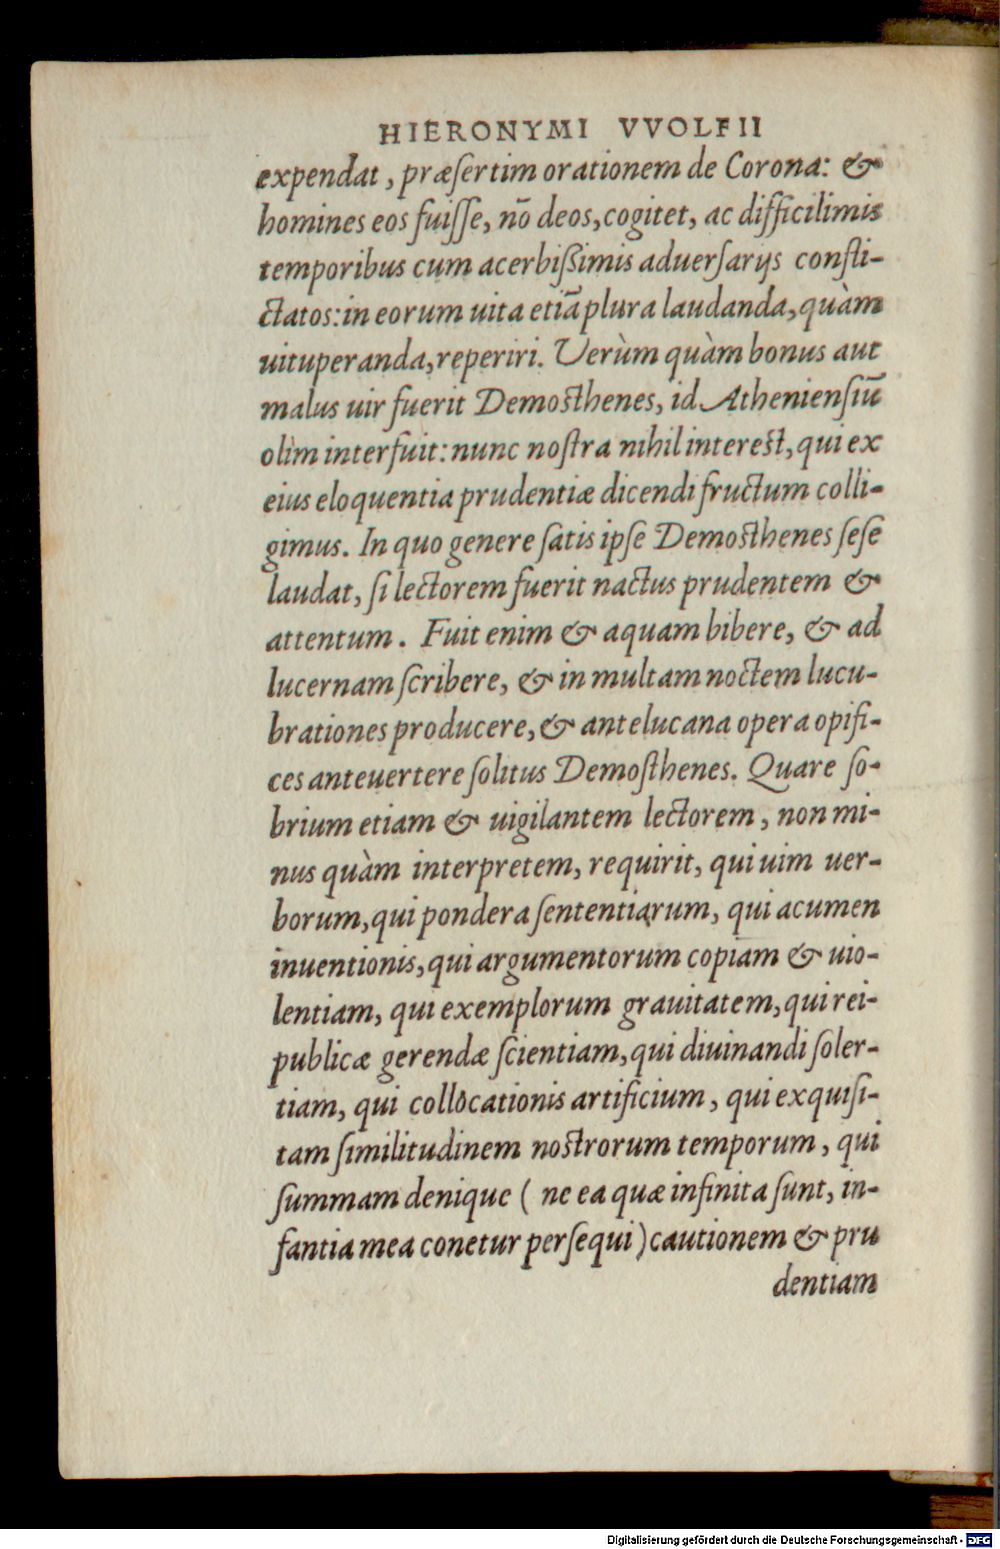 HIERONYMI VVOLFII
expendat, præſertim orationem de Corona: &
homines eos fuiſſe, nõ deos, cogitet, ac difficilimis
temporibus cum acerbißimis aduerſarijs conſli-
ctatos: in eorum uita etiã plura laudanda, quàm
uituperanda, reperiri. Verùm quàm bonus aut
malus uir fuerit Demoſthenes, id Athenienſiũ
olim interfuit: nunc noſtra nihil intereſt, qui ex
eius eloquentia prudentiæ dicendi fructum colli-
gimus. In quo genere ſatis ipſe Demoſthenes ſeſe
laudat, ſi lectorem fuerit nactus prudentem &
attentum. Fuit enim & aquam bibere, & ad
lucernam ſcribere, & in multam noctem lucu-
brationes producere, & antelucana opera opifi-
ces anteuertere ſolitus Demoſthenes. Quare ſo-
brium etiam & uigilantem lectorem, non mi-
nus quàm interpretem, requirit, qui uim uer-
borum, qui pondera ſententiarum, qui acumen
inuentionis, qui argumentorum copiam & uio-
lentiam, qui exemplorum grauitatem, qui rei-
publicæ gerendæ ſcientiam, qui diuinandi ſoler-
tiam, qui collocationis artificium, qui exquiſi-
tam ſimilitudinem noſtrorum temporum, qui
ſummam denique ( ne ea quæ infinita ſunt, in-
fantia mea conetur perſequi) cautionem & pru
dentiam
Digitalisierung gefördert durch die Deutsche Forschungsgemeinschaft - DFG